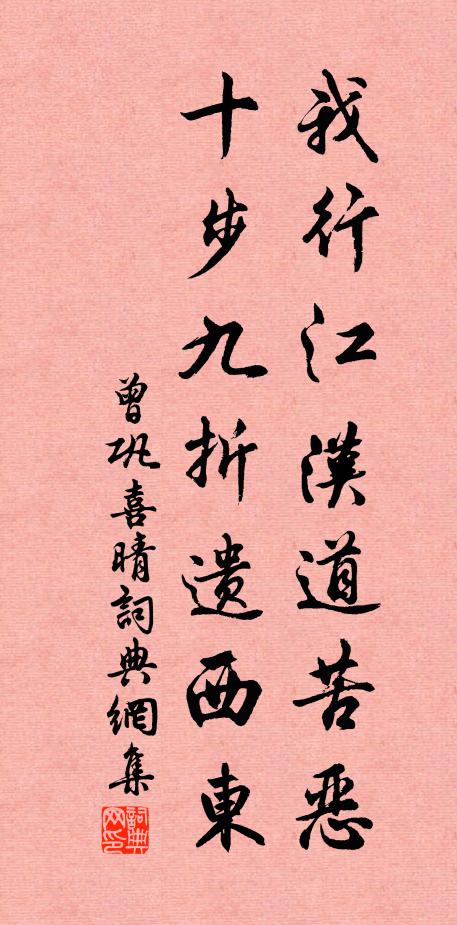 我行江漢道苦惡
十步九折遺西東
曾巩喜晴詞典網集
詞典网印